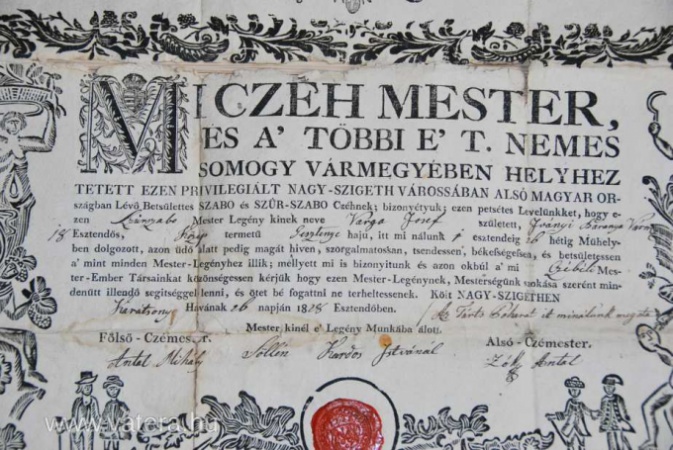 MI CZÉH MESTER,
ES A' TÖBBI E' T. NEMES
SOMOGY VÁRMEGYÉBEN HELYHEZ
TETETT EZEN PRIVILEGIÁLT NAGY-SZIGETH VÁROSSÁBAN ALSÓ MAGYAR OR-
szágban Lévő Betsülletes SZABO és SZŰR-SZABO Czéhnek; bizonyétyuk; ezen petsétes Levelünkket, hogy e-
zen Mester Legény kinek neve Varga Josef született,
18 Esztendős, termetű hajú, itt mi nálunk esztendeig hétig Műhely-
ben dolgozott, azon üdő alatt pedig magát hiven, szorgalmatoskan, tsendessen, békességessen, és betsületessen
a' mint minden Mester-Legényhez illik; mellyett mi is bizonyitunk és azon okbúl a' mi Czibéli Mes-
ter-Ember Társainkat közönségessen kérjük hogy ezen Mester-Legénynek, Mesterségünk szokása szerént min-
denütt illendő segitséggel lenni, és ötet bé fogattni ne terheltessenek. Költ NAGY-SZIGETHEN
Havának 26 napján 1828 Esztendőben.
Mester, kinél e' Legény Munkába álott.
Fölső-Czémester. Alsó-Czémester.
Antal Mihály Kardos Istvánál Antal
www.vatera.hu